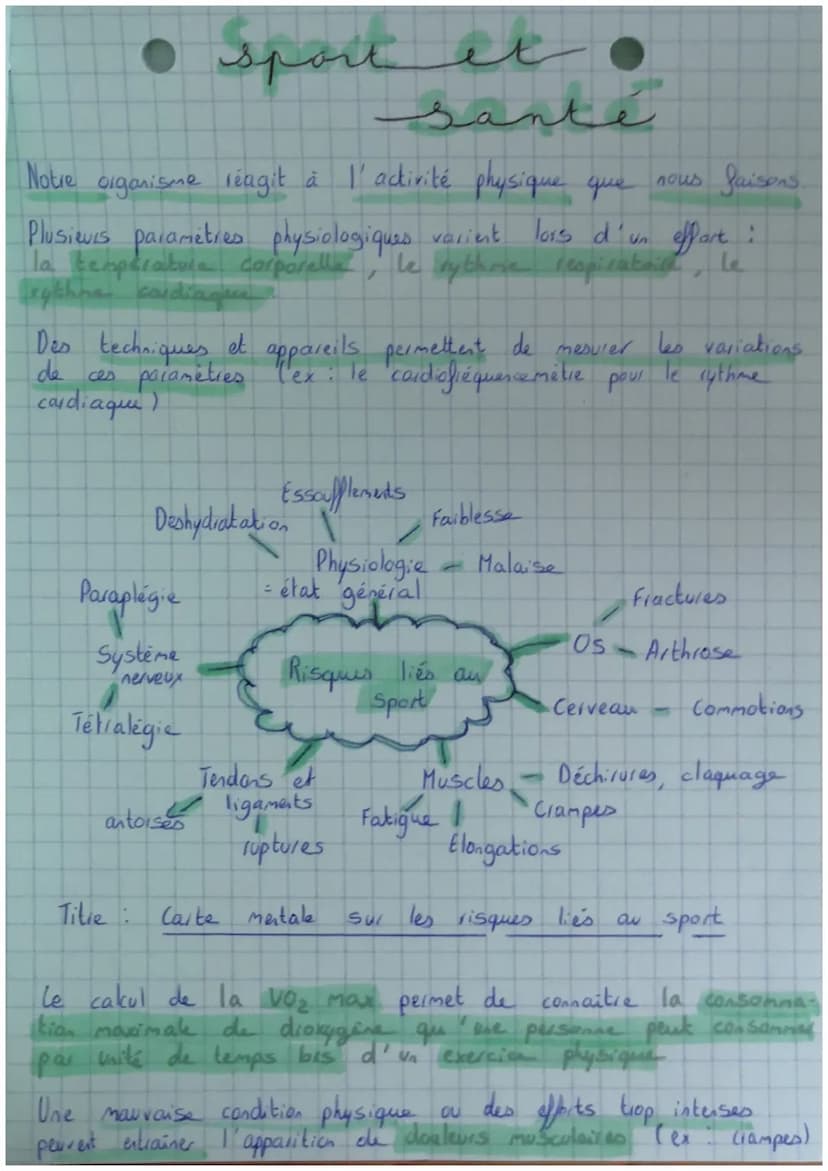 Sport et
santé
Notre organisme réagit à l'activité physique que nous faisons.
Plusieurs paramètres physiologiques varient lors d'un effort :
la température corporelle, le rythme respiratoire, le
rythme cardiaque.
Des techniques et appareils permettent de mesurer les variations
de ces paramètres (ex : le cardiofréquencemètre pour le rythme
cardiaque)
Essoufflements
Deshydratation
Faiblesse
Physiologie
= état général
Malaise
Paraplégie
Système
nerveux
Tétralégie
Risques liés au
Sport
Fractures
Os
Arthrose
Cerveau
Commotions
Tendons et
ligaments
antorses
ruptures
Muscles
Déchirures, claquage
Crampes
Fatigue
Elongations
Titre : Carte mentale sur les risques liés au sport
Le calcul de la VO₂ max permet de connaitre la consomma-
tion maximale de dioxygène qu'une personne peut consommer
par unité de temps lors d'un exercice physique
Une mauvaise condition physique ou des efforts trop intenses
peuvent entraîner l'apparition de douleurs musculaires (ex : crampes)